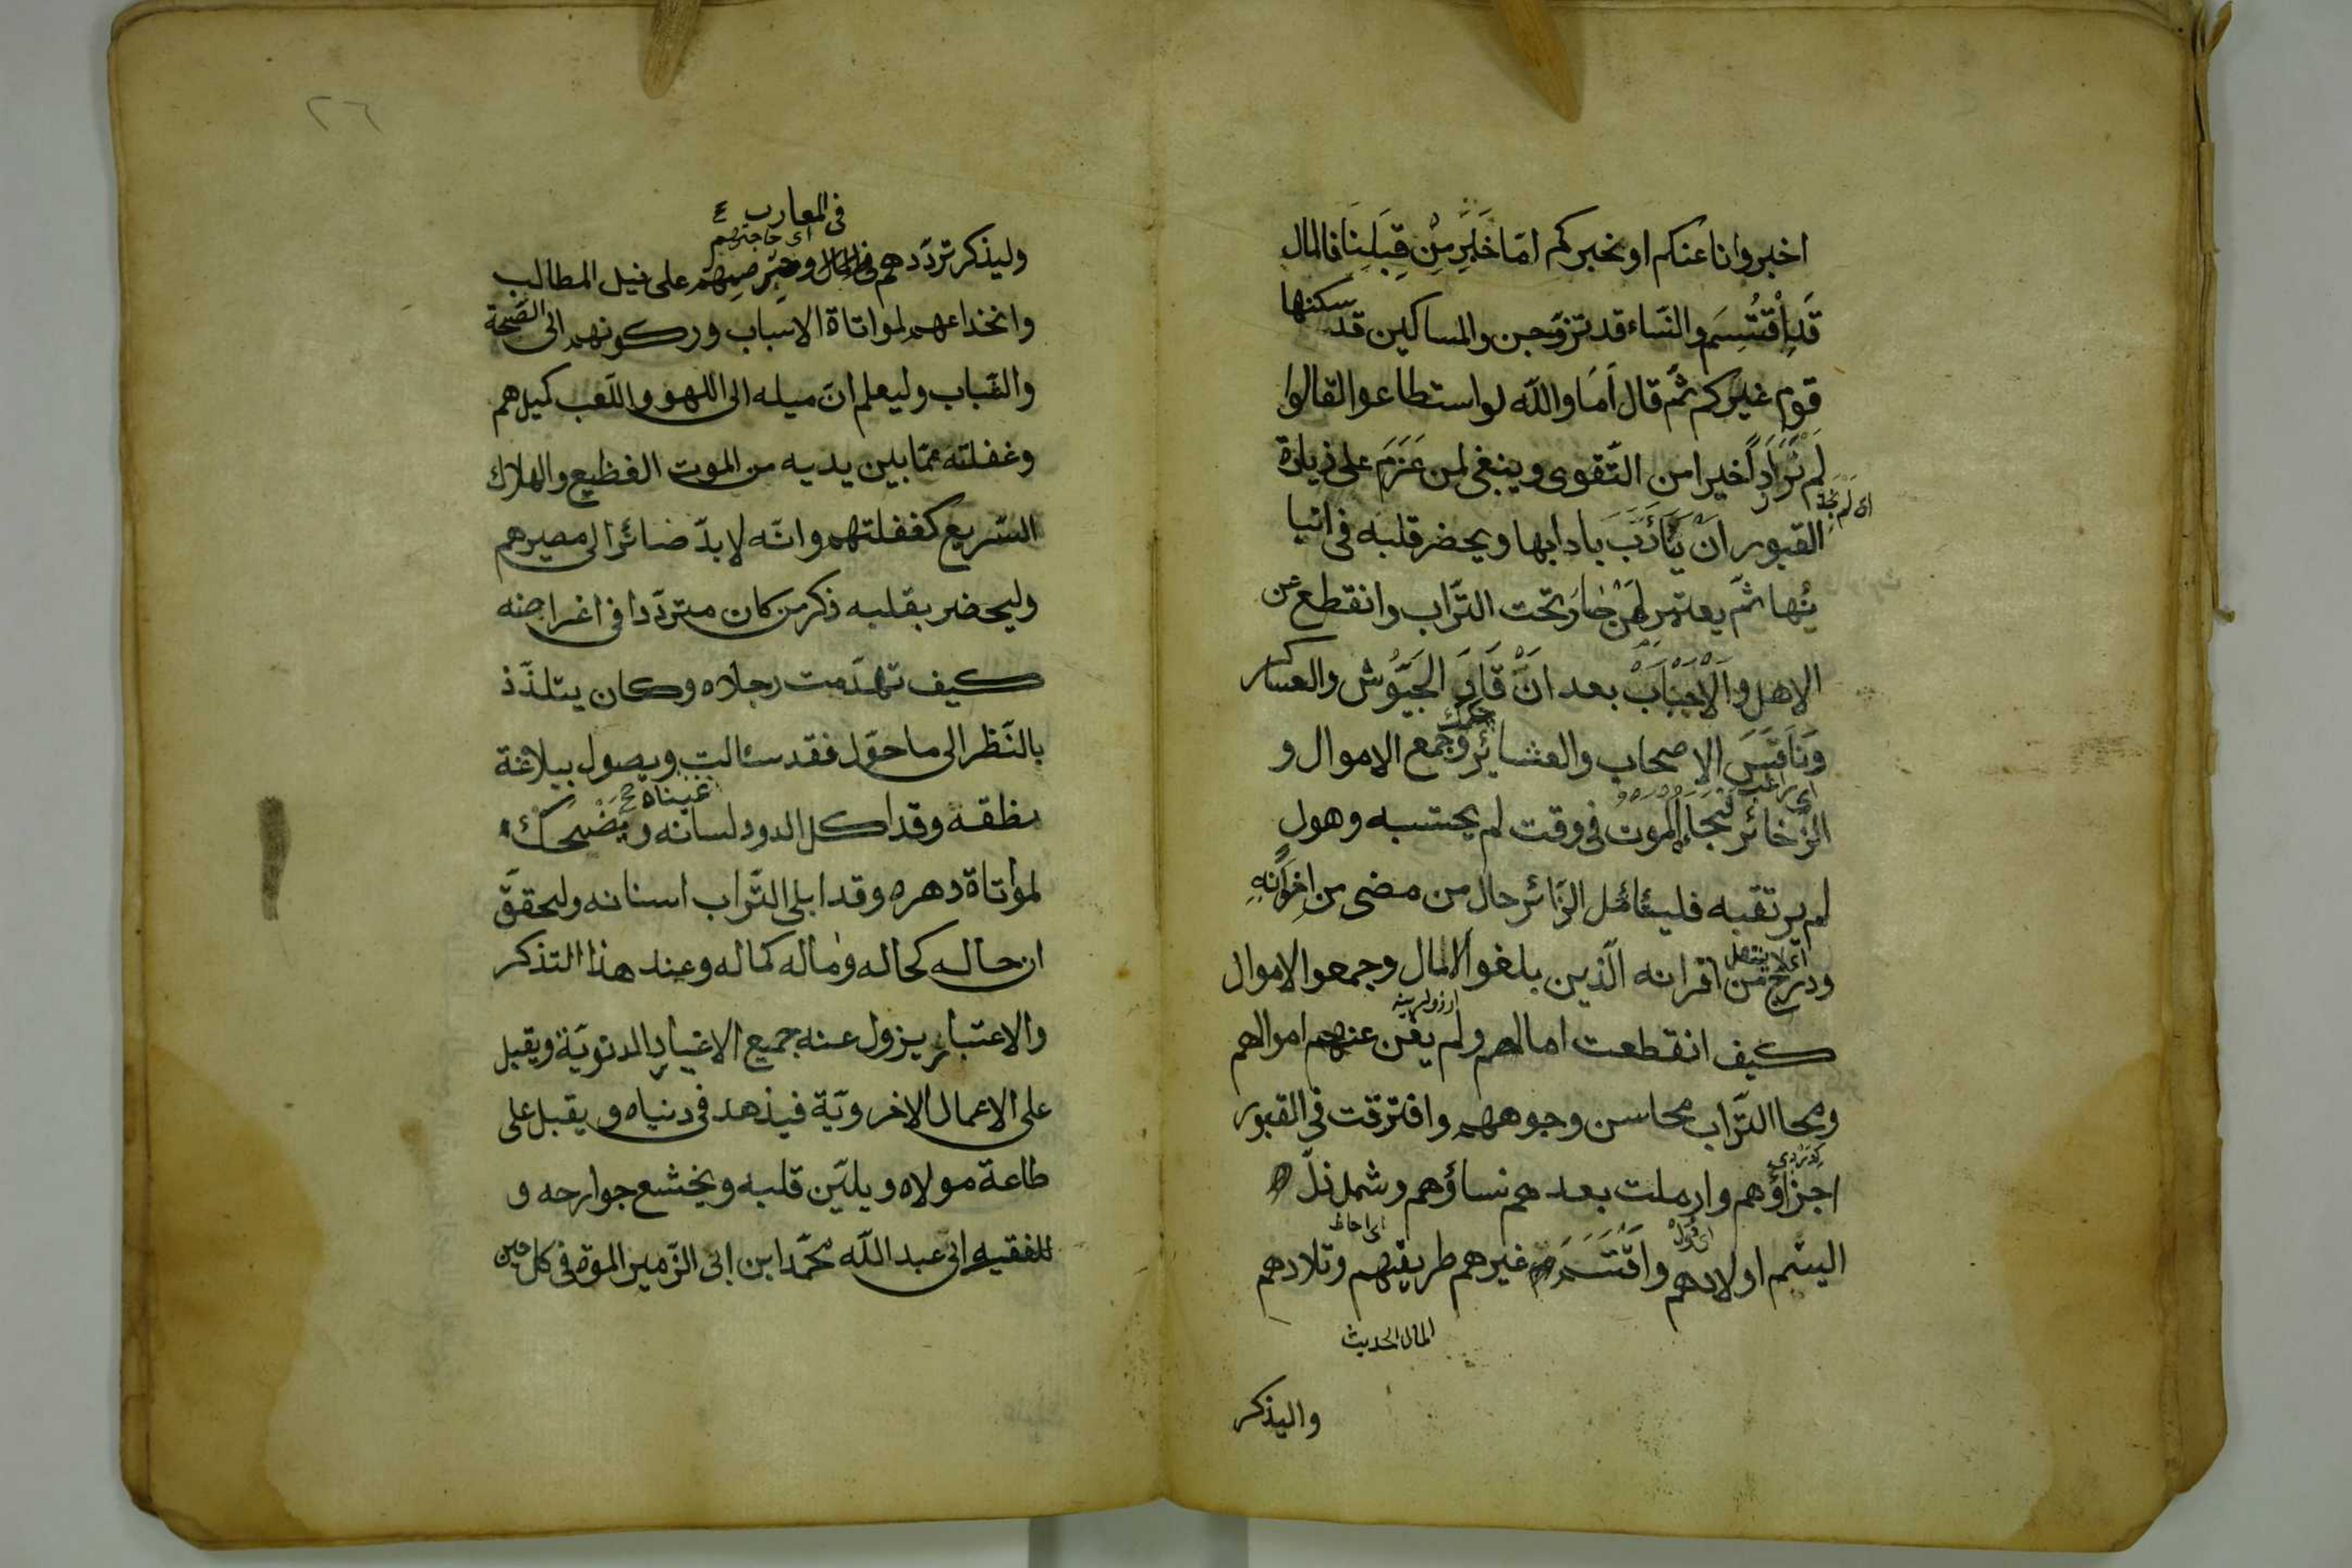 اخبروانا عنكم او نخبركم امّا خَبَرِ مِنْ قِبَلِنَا فالمال
قَدِاقْتُسِمَ والنّساء قد تزوّجن والمساكين قد سكنها
قوم غيركم ثمّ قال اَمَا واللّٰه لو استطاعوا لقالوا
لم نَرَ زَاداً خيرا من التّقوى وينبغى لمن عَزَمَ على زيارة
اى لم نجد
القبور انْ يَتَأَدَّبَ بادابها ويحضر قلبه فى اتيا
نها ثمّ يعتبر لمن صار تحت التّراب وانقطع عن
الاهل والْاَحْبَابْ بعد انْ قَادَ الجُيُوش والعساكر
وَنَافَسَ الاصحاب والعشائر وجمع الاموال و
اى راغب
الزّخائر فجاء الموت فى وقت لم يحتسبه وهول
لم يرتقبه فليتأمّل الزّائر حال من مضى من اِخْوَانِهِ
ودرج من اقرانه الّذين بلغوا الامال وجمعوا الاموال
كيف انقطعت امالهم ولم يغن عنهم اموالهم
ومحا التّراب محاسن وجوههم وافترقت فى القبور
اجزاؤهم وارملت بعدهم نساؤهم وشمل ذلّ
اى احاط
اليتم اولادهم واقْتَسَمَ غيرهم طريفهم وتلادهم
المال الحديث
واليذكر
٢٦
فى المعارب
اى حاجتهم
وليذكر تردّدهم فى المال وحرصهم على نيل المطالب
وانخداعهم لمواتاة الاسباب وركونهم الى الصّحة
والشّباب وليعلم انّ ميله الى اللهو واللّعب كميلهم
وغفلته عمّا بين يديه من الموت الفظيع والهلاك
السّريع كغفلتهم وانّه لا بدّ صائر الى مصيرهم
وليحضر بقلبه ذكر من كان متردّدا فى اغراضه
كيف تهدّمت رجلاه وكان يتلذّذ
بالنّظر الى ما حوّل فقد سئالت ويصول ببلاغة
عيناه
نطقه وقد اكل الدود لسانه ويَضْحَكُ
لمواتاة دهره وقد ابلى التّراب اسنانه وليحقّق
ان حاله كحاله وماله كماله وعند هذا التذكر
والاعتبار يزول عنه جميع الاغيار الدنويّة ويقبل
على الاعمال الاخرويّة فيذهد فى دنياه ويقبل على
طاعة مولاه ويليّن قلبه ويخشع جوارحه و
للفقيه ابى عبد اللّه محمّد ابن ابى الزّمين الموت فى كل حين